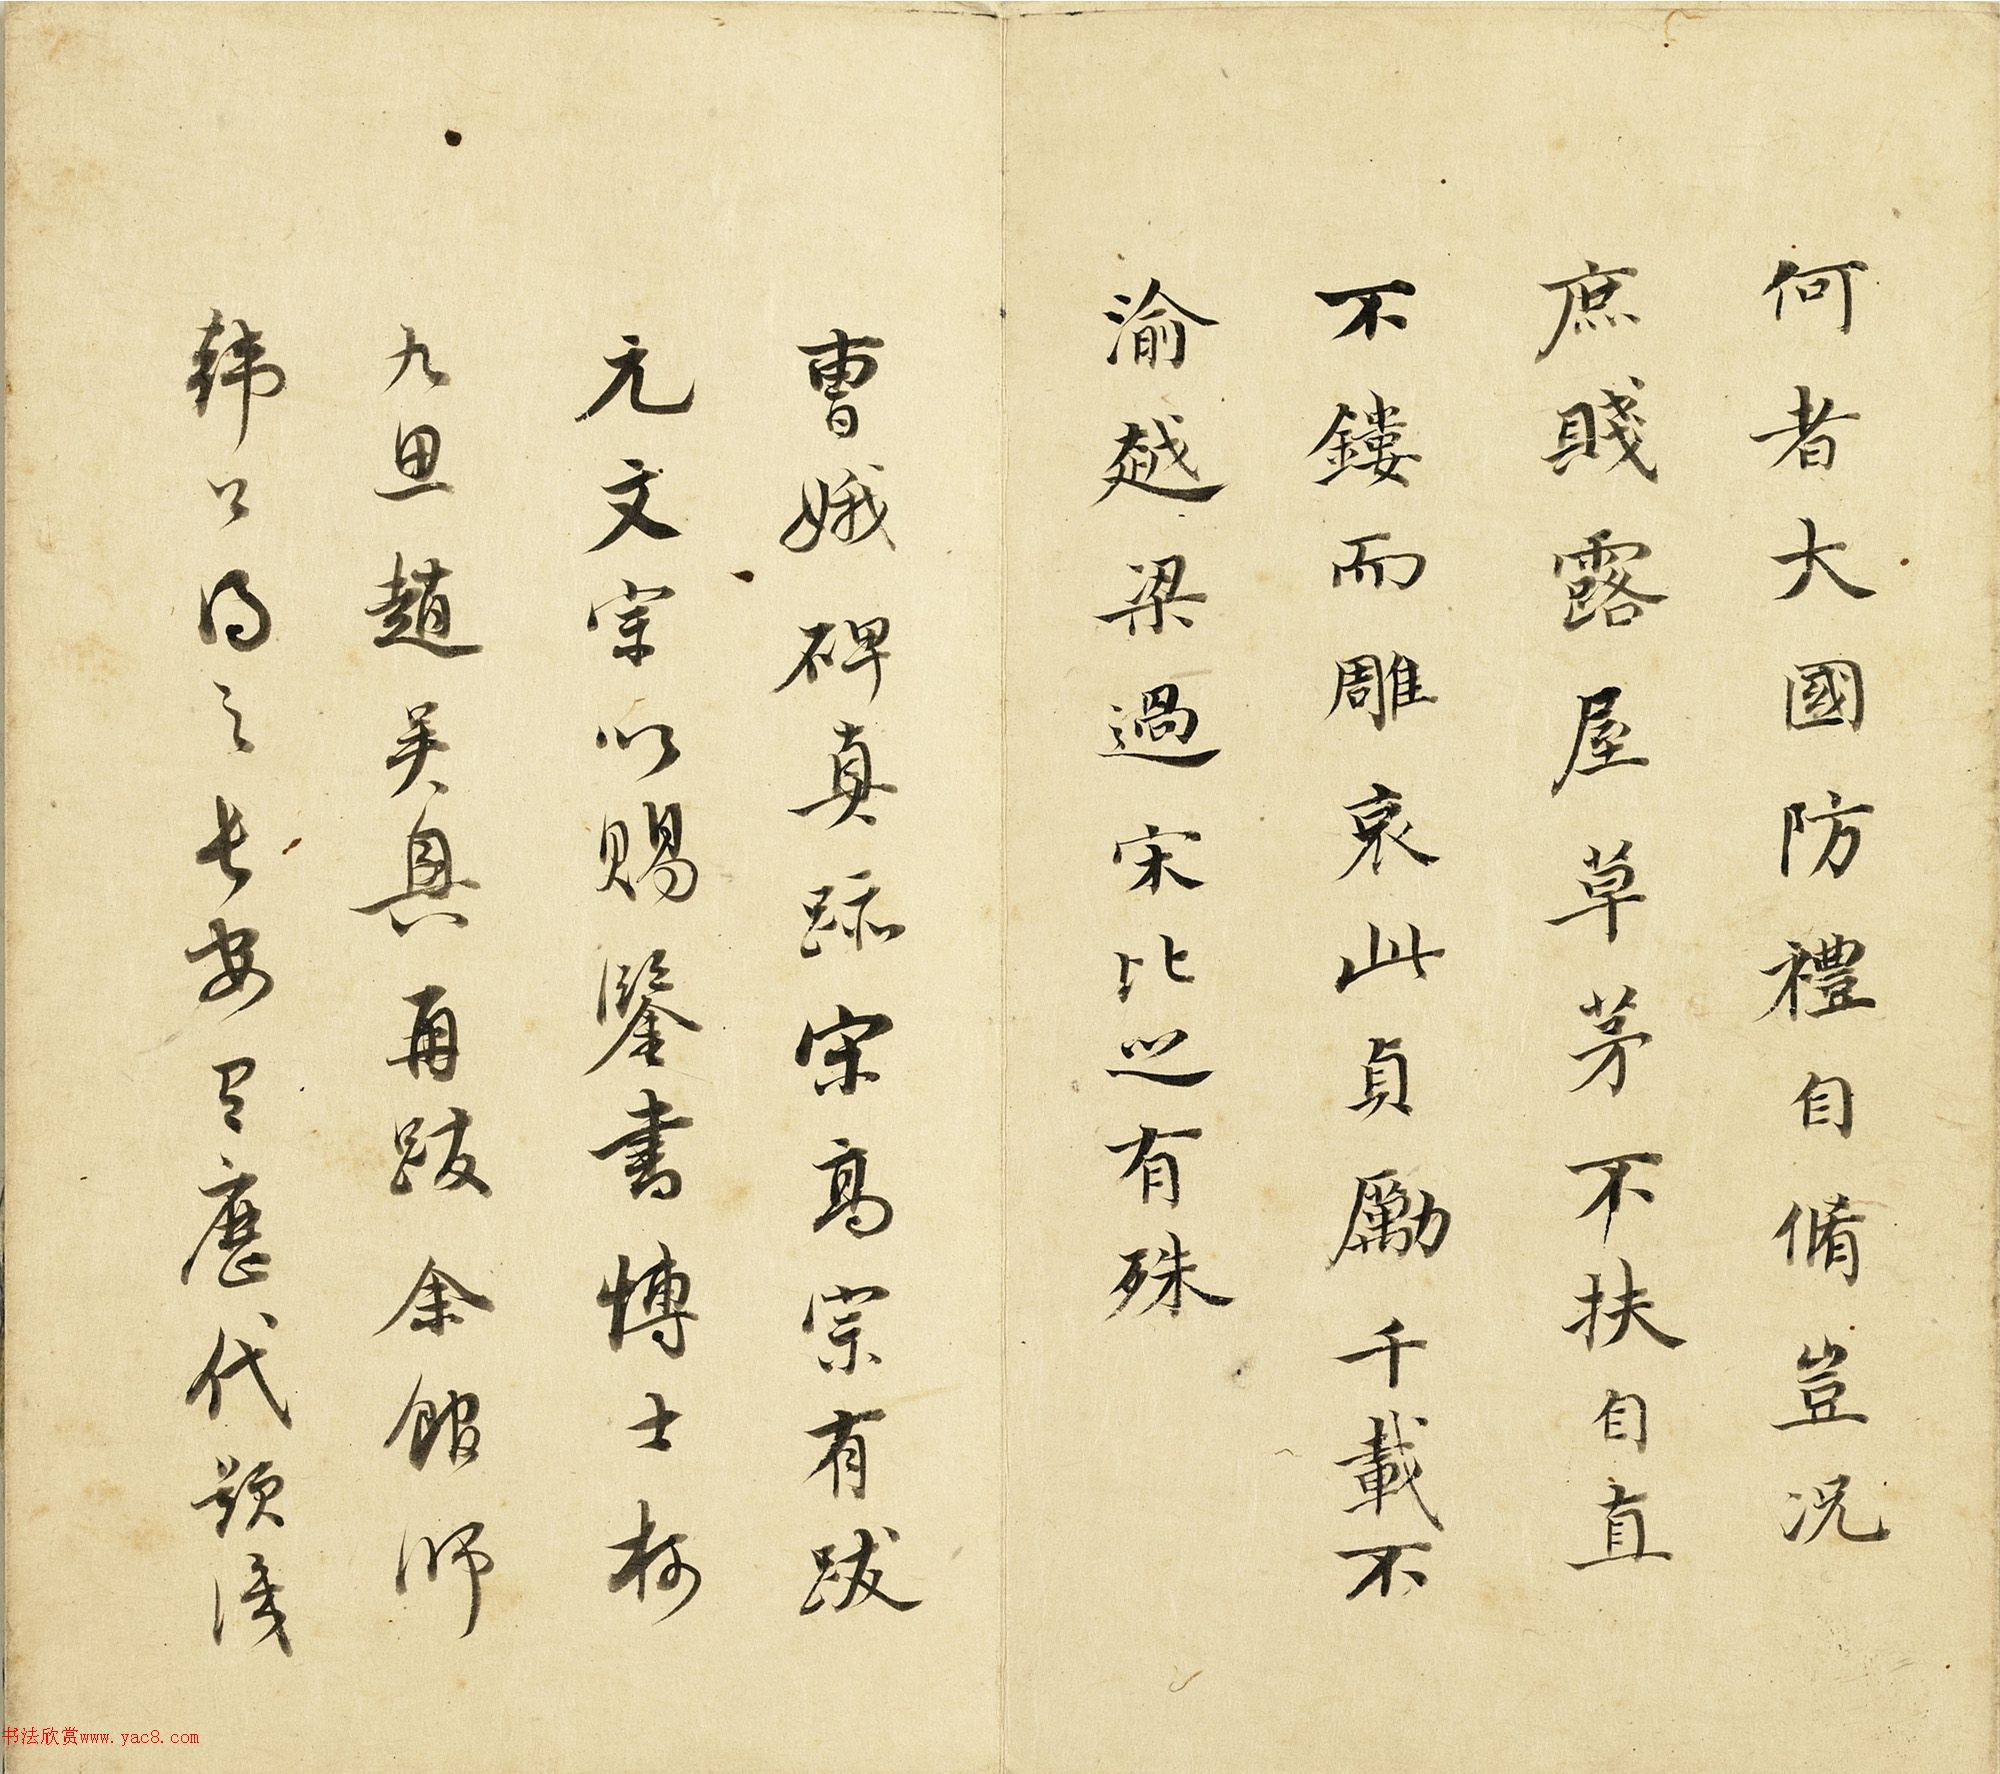 何者大國防禮自脩豈況
庶賤露屋草茅不扶自直
不鏤而雕哀此貞勵千載不
渝越梁過宋比之有殊
曹娥碑真跡宋高宗有跋
元文宗以賜鑒書博士柯
九思趙吴興再跋余館師
韓公得之長安有歷代題識
书法欣赏www.yac8.com